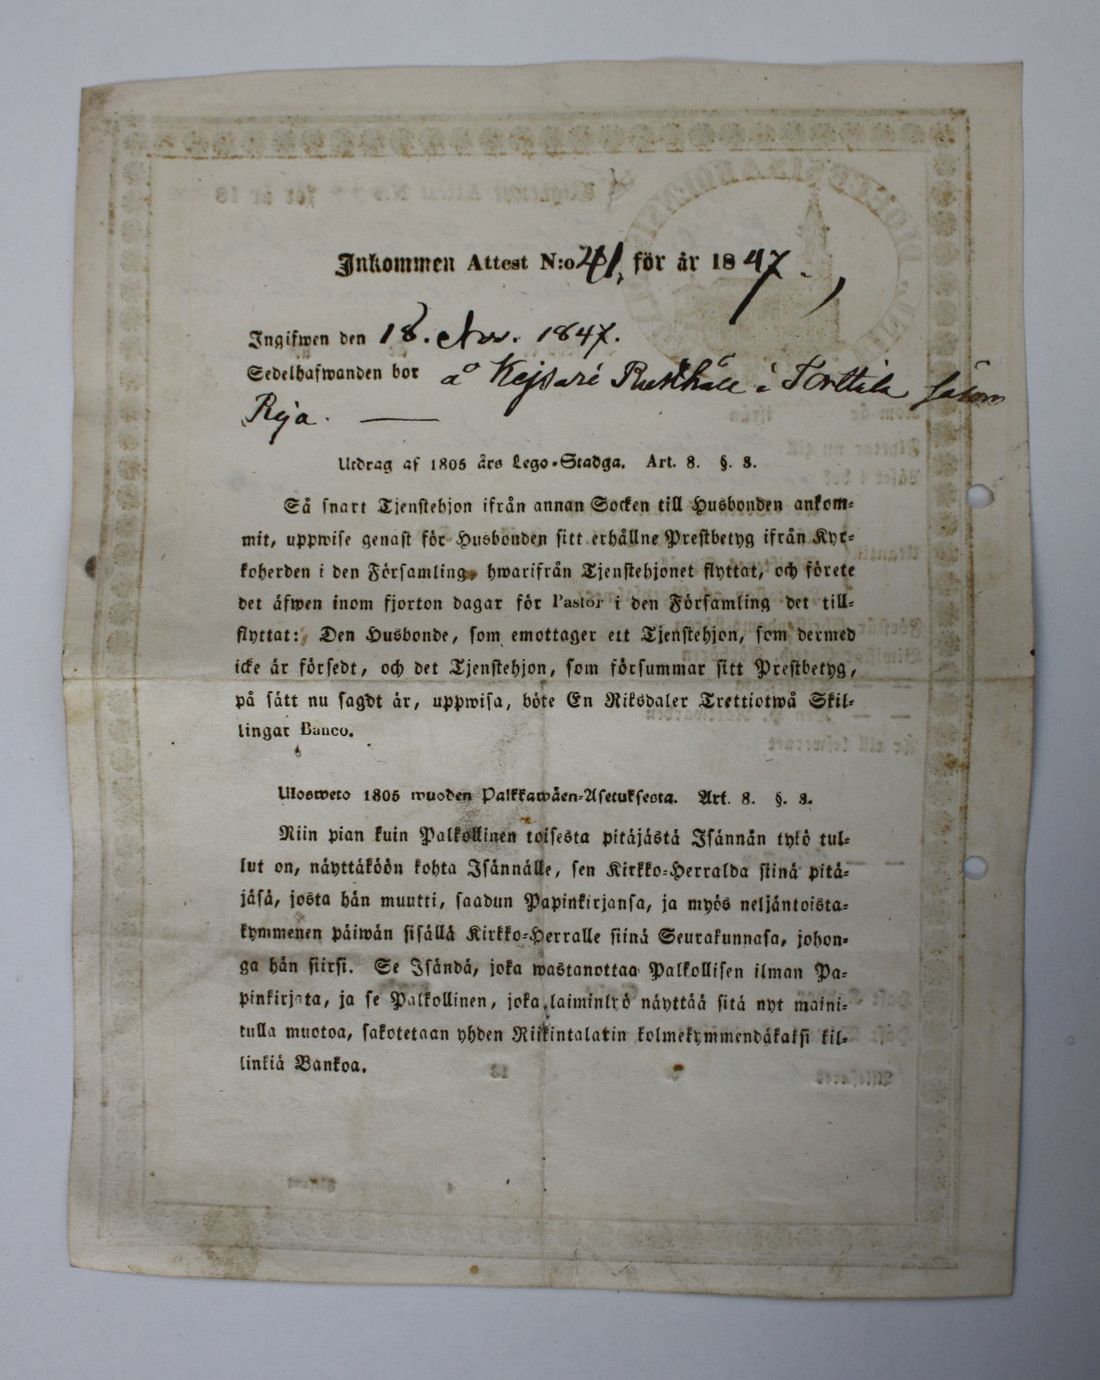 Inkommen Attest N:o 41, för år 1847.
Ingifwen den 18. Nov. 1847.
Sedelhafwanden bor å Kejsari Rusthåll i Torttila såsom
Piga. —
Utdrag af 1805 års Lego-Stadga. Art. 8. §. 3.
Så snart Tjenstehjon ifrån annan Socken till Husbonden ankom-
mit, uppwise genast för Husbonden sitt erhållne Prestbetyg ifrån Kyr-
koherden i den Församling, hwarifrån Tjenstehjonet flyttat, och förete
det äfwen inom fjorton dagar för Pastor i den Församling det till-
flyttat: Den Husbonde, som emottager ett Tjenstehjon, som dermed
icke är försedt, och det Tjenstehjon, som försummar sitt Prestbetyg,
på sätt nu sagdt är, uppwisa, böte En Riksdaler Trettiotwå Skil-
lingar Banco.
Ulosweto 1805 wuoden Palkkawäen-Asetuksesta. Art. 8. §. 3.
Niin pian kuin Palkollinen toisesta pitäjästä Isännän tykö tul-
lut on, näyttäköön kohta Isännälle, sen Kirkko-Herralda siinä pitä-
jäsä, josta hän muutti, saadun Papinkirjansa, ja myös neljäntoista-
kymmenen päiwän sisällä Kirkko-Herralle siinä Seurakunnasa, johon-
ga hän siirsi. Se Isändä, joka wastanottaa Palkollisen ilman Pa-
pinkirjata, ja se Palkollinen, joka laiminlyö näyttää sitä nyt maini-
tulla muotoa, sakotetaan yhden Riikintalarin kolmekymmendäkaksi kil-
linkiä Bankoa.